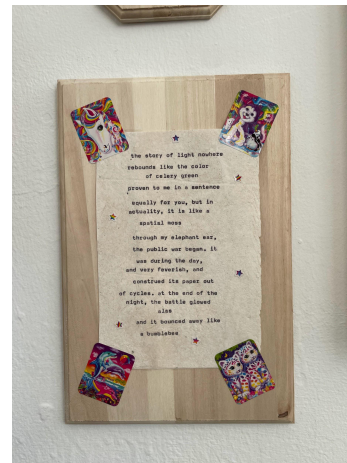 the story of light nowhere
rebounds like the color
of celery green
proven to me in a sentence
equally for you, but in
actuality, it is like a
spatial moss
through my elephant ear,
the public war began, it
was during the day,
and very feverish, and
construed its paper out
of cycles. at the end of the
night, the battle glowed
alms
and it bounced away like
a bumblebee